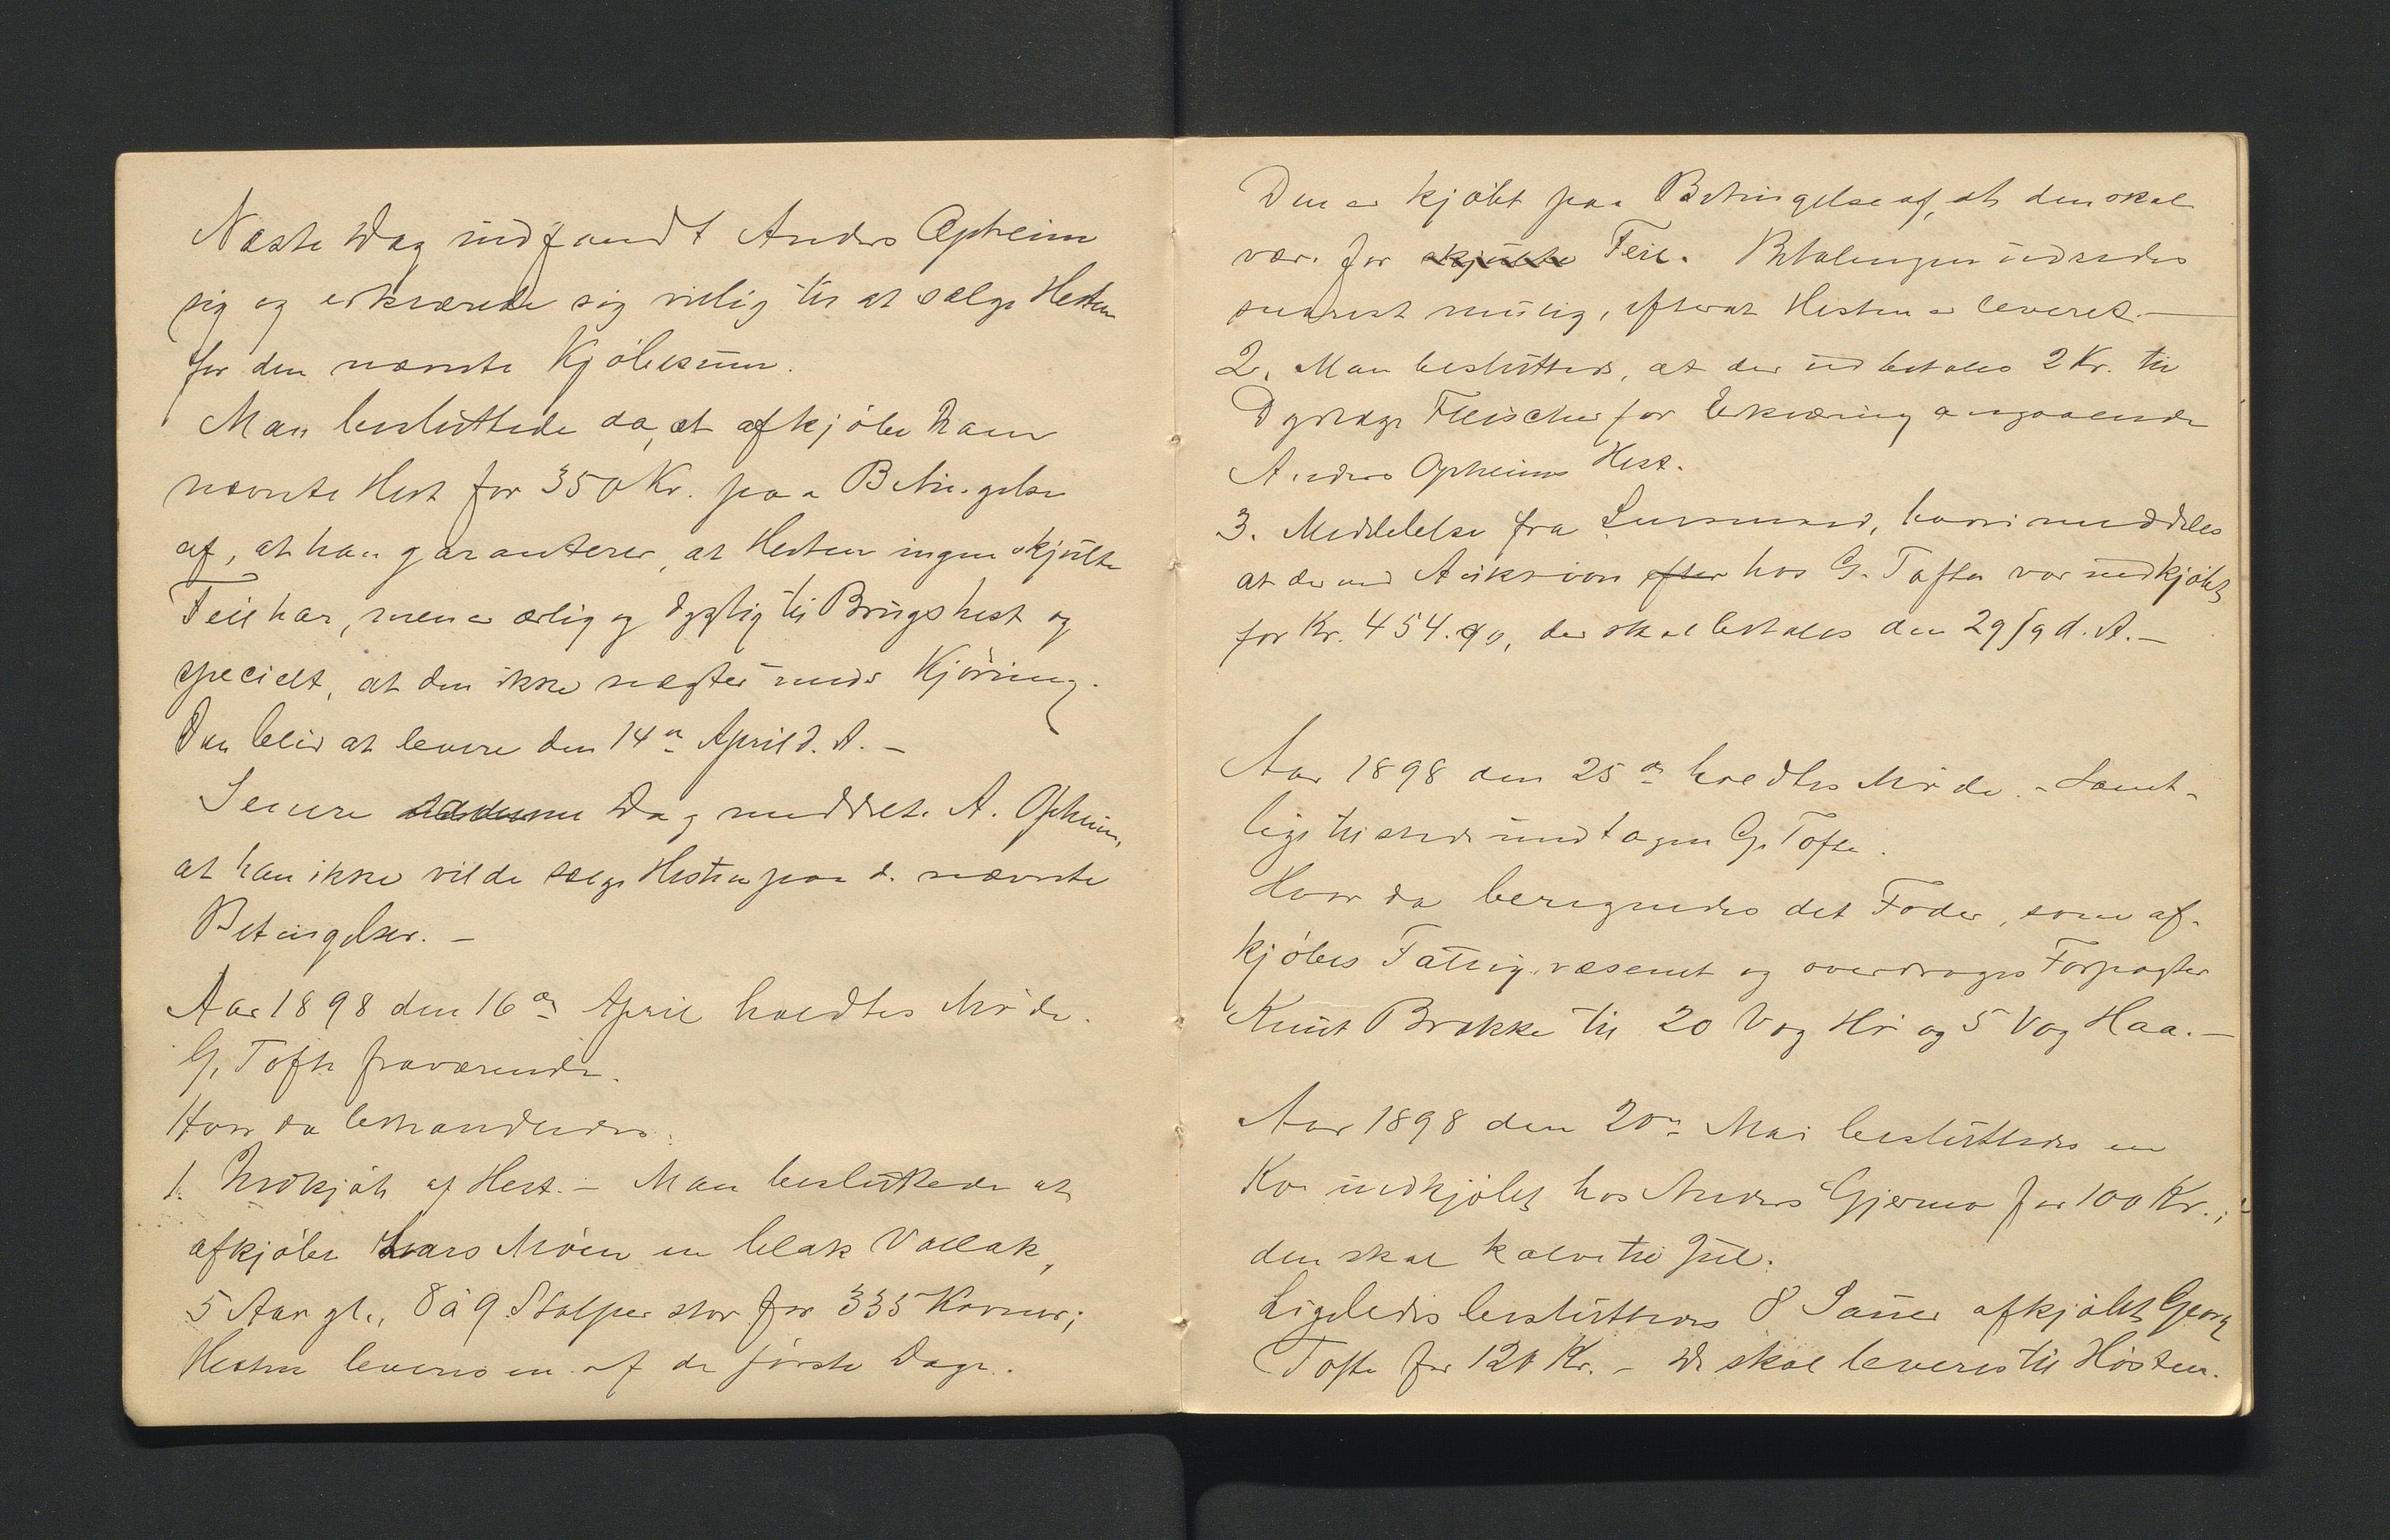 Næste Dag indfandt Anders Opheim
sig og erklærede sig villig til at sælge Hesten
for den nævnte Kjøbesum.
Man besluttede da, at afkjøbe ham
nævnte Hest for 350 Kr. paa Betingelse
af, at han garanterer, at Hesten ingen skjulte
Feil har, men er ærlig og dygtig til Brugshest og
specielt, at den ikke nægter under Kjøring.
Den blir at levere den 14de April d. A. –
Senere Dag meddelte A. Opheim,
at han ikke vilde sælge Hesten paa d. nævnte
Betingelser. –
Aar 1898 den 16de April holdtes Møde.
G. Tofte fraværende.
Hvor da behandledes:
1. Indkjøb af Hest. – Man besluttede at
afkjøbe Lars Moen en blak Vallak,
5 Aar gl., 8 à 9 Stolper stor for 335 Kroner;
Hesten leveres en af de første Dage.
Den er kjøbt paa Betingelse af, at den skal
være for skjulte Feil. Betalingen udredes
snarest mulig, efterat Hesten er leveret. –
2. Man besluttede, at der udbetales 2 Kr. til
Dyrlæge Fleischer for Erklæring angaaende
Anders Opheims Hest.
3. Meddelelse fra Lensmand, hvori meddeles
at der ved Auksion efter hos G. Tofte var indkjøbt
for Kr. 454.90, der skal betales den 29/9 d. A. –
Aar 1898 den 25de holdtes Møde. – Samt-
lige tilstede undtagen G. Tofte.
Hvor da beregnedes det Foder, som af-
kjøbes Fattigvæsenet og overdrages Forpagter
Knut Brække til 20 Vog Hø og 5 Vog Haa. –
Aar 1898 den 20de Mai besluttedes en
Ko indkjøbt hos Anders Gjermo for 100 Kr.;
den skal kalve til Jul.
Ligeledes besluttedes 8 Sauer afkjøbt Georg
Tofte for 120 Kr. – De skal leveres til Høsten.